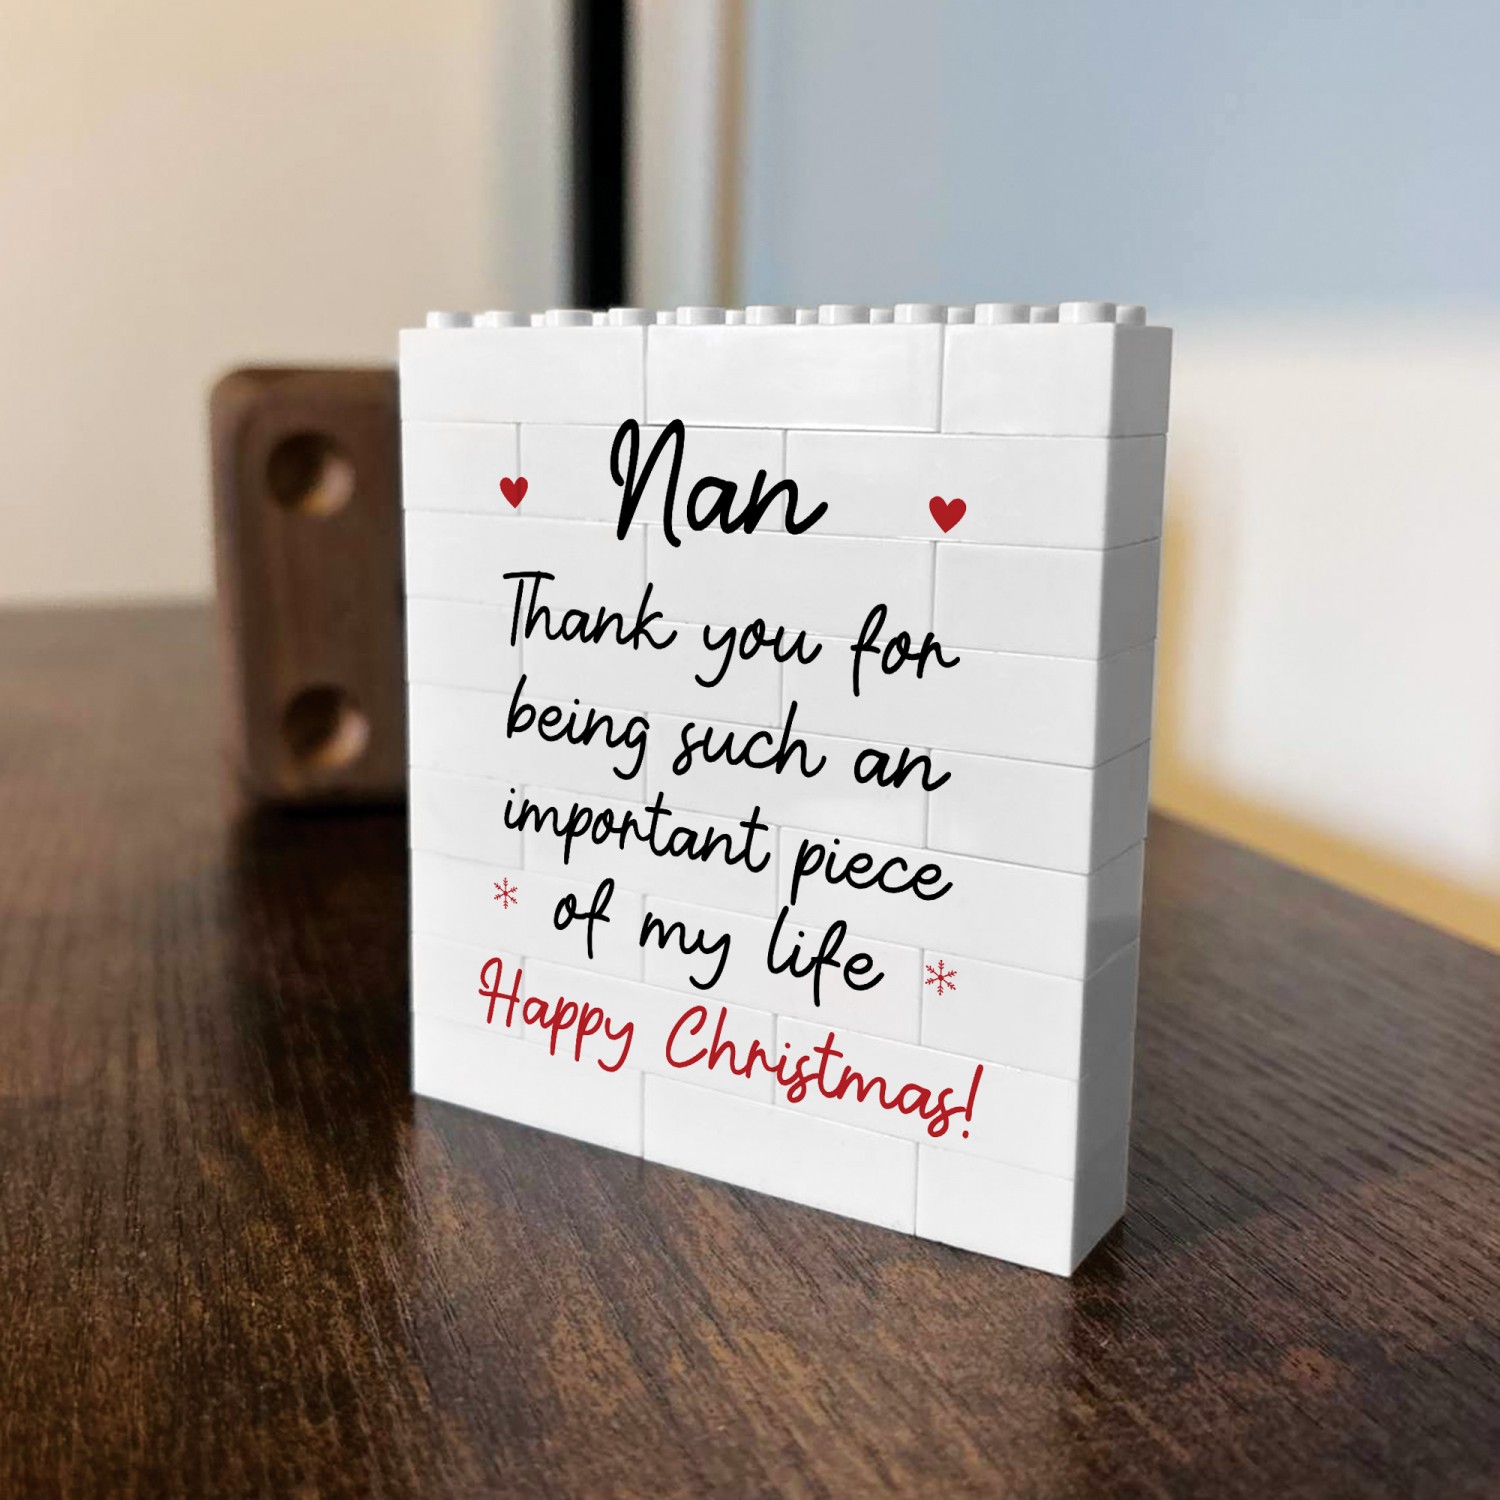 Nan
Thank you for
being such an
important piece
of my life
Happy Christmas!